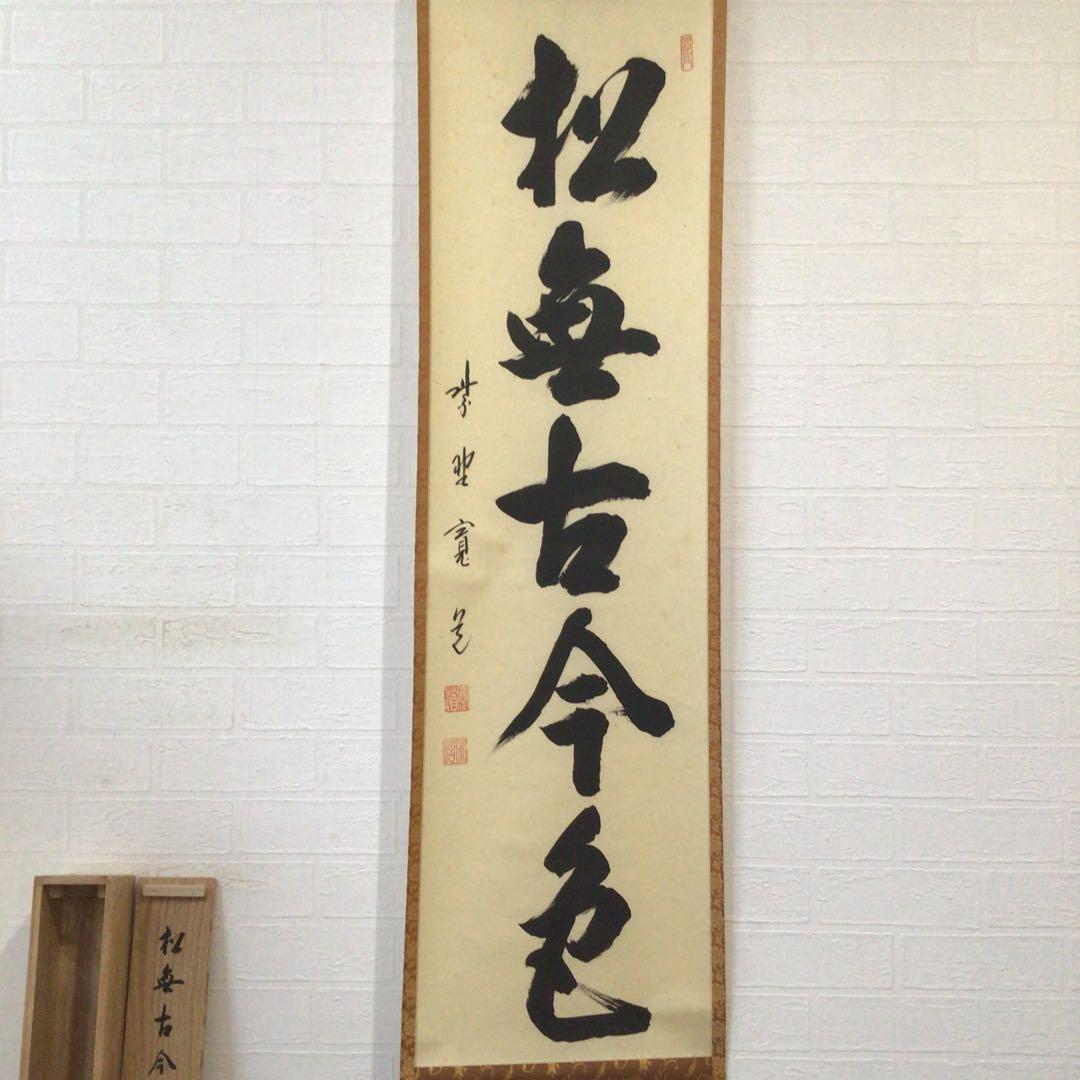 松無古今色
紫野寛道
松無古今